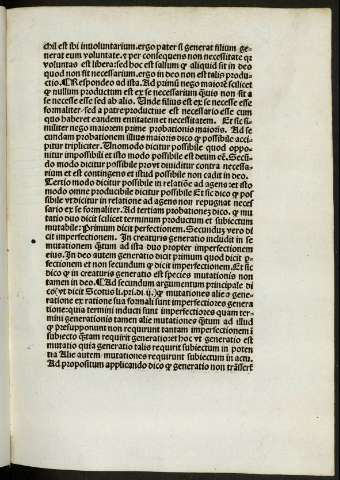 chil est ibi inuoluntarium. ergo pater si generat filium ge-
nerat eum voluntate. ⁊ per consequens non necessitate qꝛ
voluntas est libera: sed hoc est falsum ꝙ aliquid sit in deo
quod non sit necessarium. ergo in deo non est talis produ-
ctio. Respondeo ad ista. Ad primū nego maiorē scilicet
ꝙ nullum productum est ex se necessarium qͣuis non sit a
se necesse esse sed ab alio. Unde filius est ex se necesse esse
formaliter: sed a patre productiue est necessario esse cum
quo haberet eandem entitatem et necessitatem. Et sic si-
militer nego maiorem prime probationis maioris. Ad se
cundam probationem illius maioris dico ꝙ possibile acci-
pitur tripliciter. Uno modo dicitur possibile quod oppo-
nitur impossibili et isto modo possibile est deum eē. Secū-
do modo dicitur possibile prout diuiditur contra necessa-
rium et est contingens et istud possibile non cadit in deo.
Tertio modo dicitur possibile in relationē ad agens: et isto
modo omne producibile dicitur possibile Et sic dico ꝙ pos
sibile vt dicitur in relatione ad agens non repugnat neces
sario ex se formaliter. Ad tertiam probationeꝫ dico. ꝙ mu
tatio duo dicit scilicet terminum productum et subiectum
mutabile: Primum dicit perfectionem. Secunduꝫ vero di
cit imperfectionem. In creaturis generatio includit in se
mutationem qͣntum ad ista duo propter imperfectionem
eius. In deo autem generatio dicit primum quod dicit p-
fectionem et non secundum ꝙ dicit imperfectionem. Et sic
dico ꝙ in creaturis generatio est species mutationis non
tamen in deo. Ad secundum argumentum principale di
co vt dicit Scotus li. pri. di. ij. ꝙ mutationes alie a gene-
ratione ex ratione sua formali sunt imperfectiores genera
tione: quia termini inducti sunt imperfectiores quam ter-
mini generationis tamen alie mutationes qͣntum ad illud
ꝙ presupponunt non requirunt tantam imperfectionem ī
subiecto qͣntam requirit generatio: et hoc vt generatio est
mutatio quia generatio talis requirit subiectum in poten
tia Alie autem mutationes requirunt subiectum in actu.
Ad propositum applicando dico ꝙ generatio non trāsfert